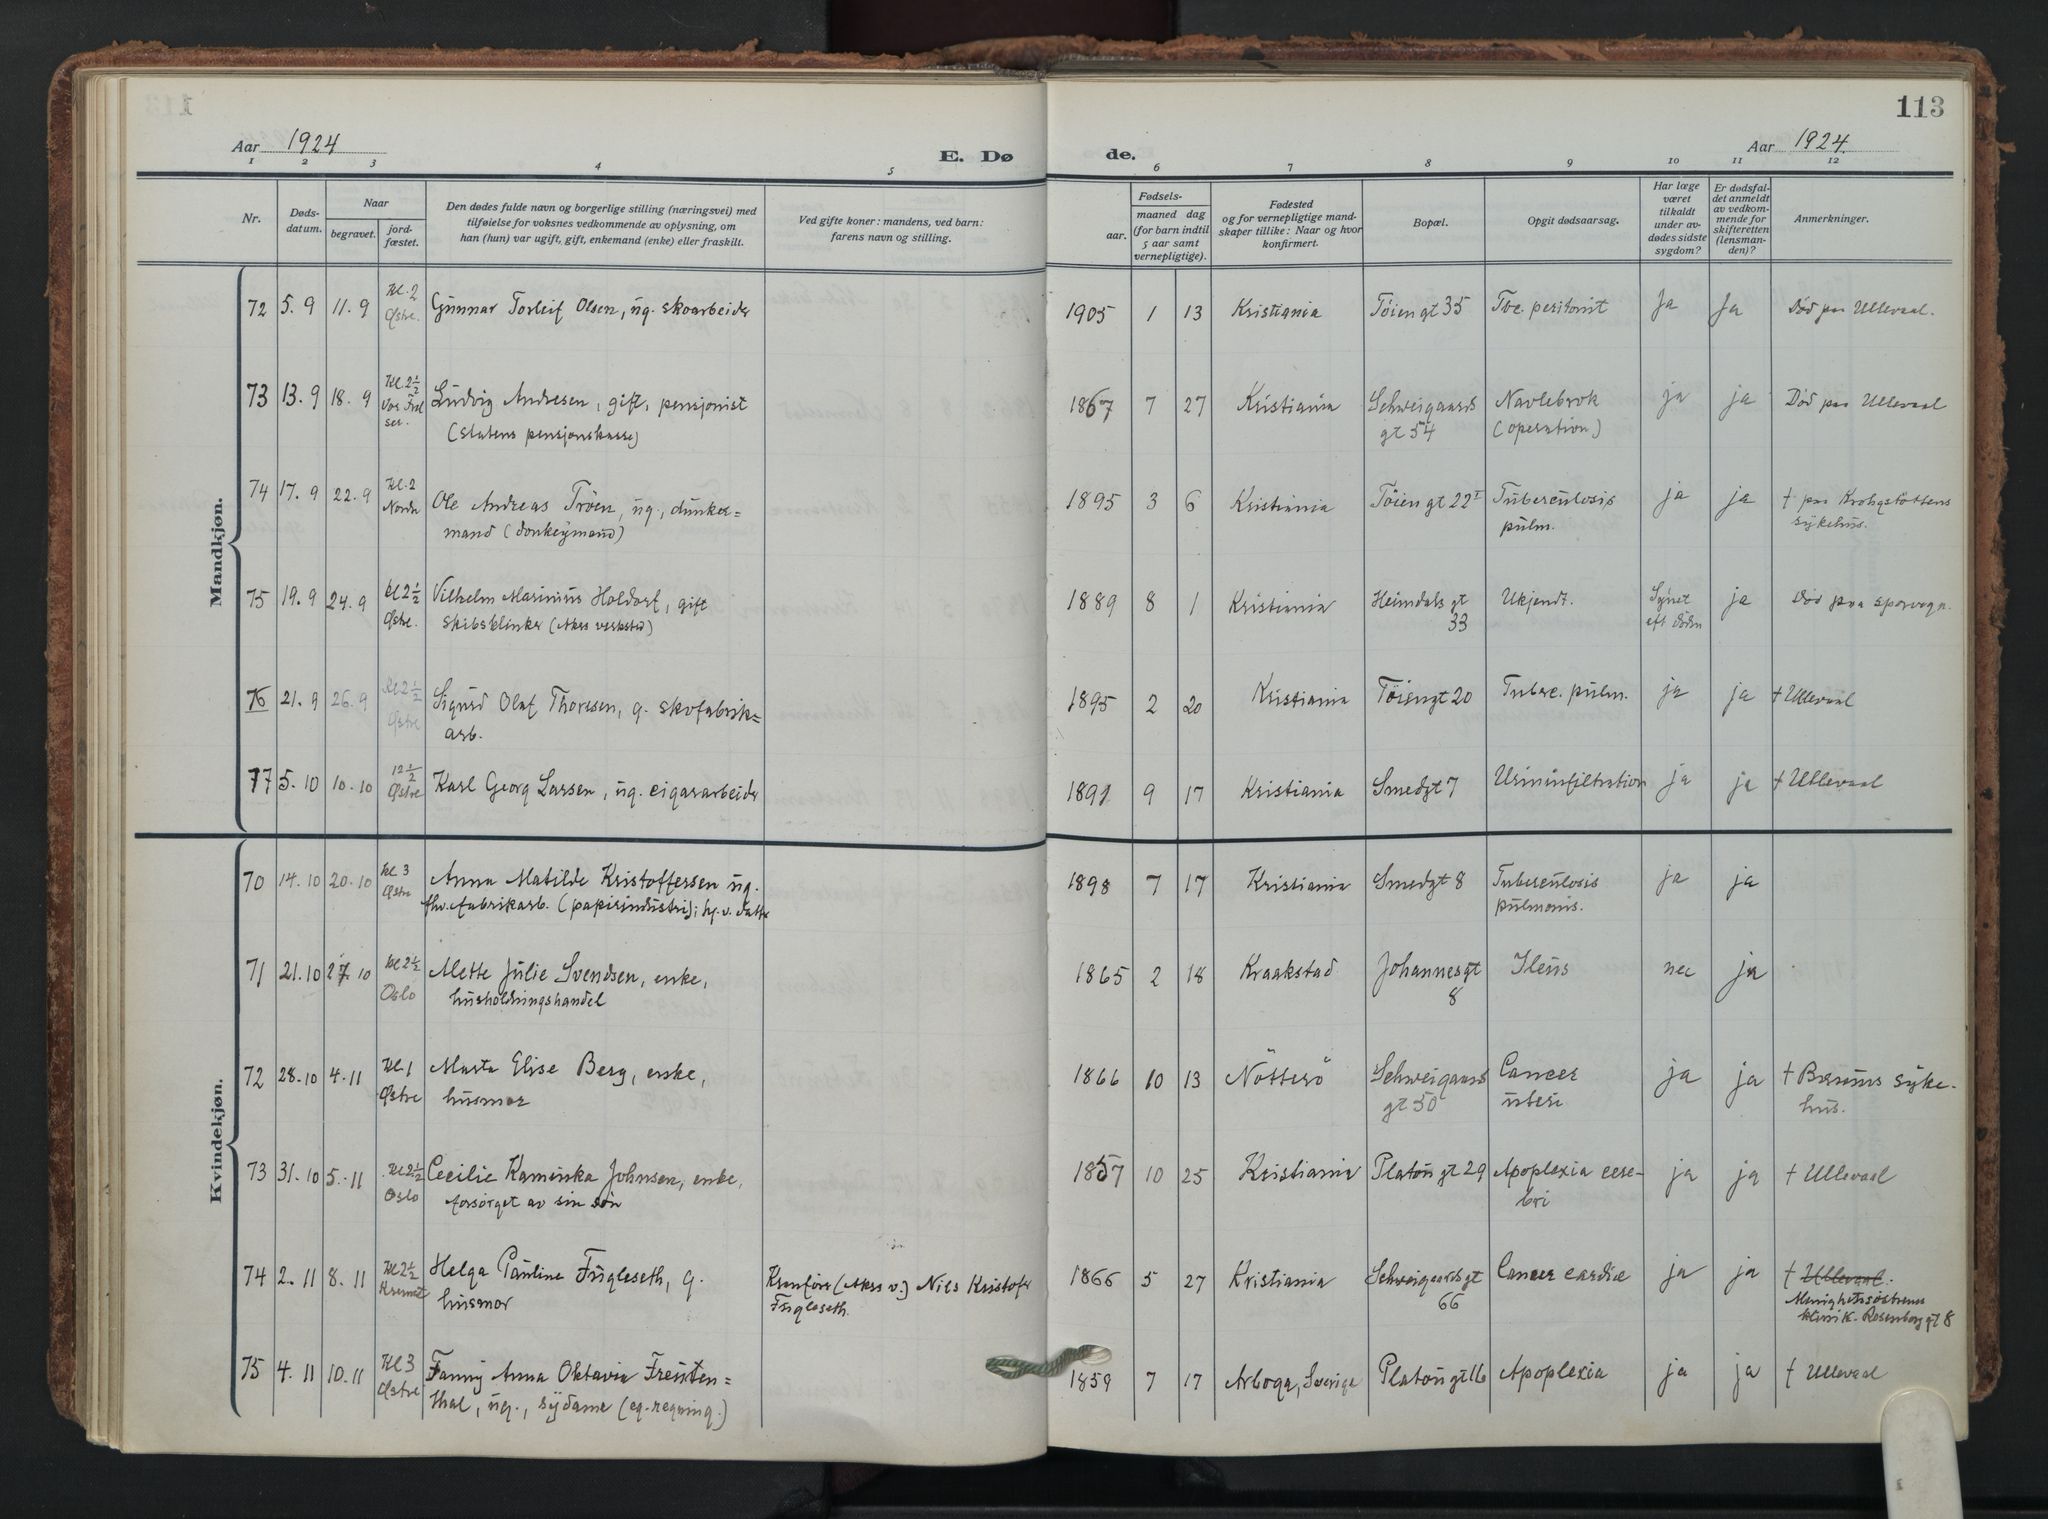 113
Aar 1924
E. Dø de.
Aar 1924.
1 2 3 4 5 6 7 8 9 10 11 12
Nr.
Døds-
datum.
Naar
begravet.
jord-
fæstet.
Den dødes fulde navn og borgerlige stilling (næringsvei) med
tilføielse for voksnes vedkommende av oplysning, om
han (hun) var ugift, gift, enkemand (enke) eller fraskilt.
Ved gifte koner: mandens, ved barn:
farens navn og stilling.
Fødsels-
aar.
maaned dag
(for barn indtil
5 aar samt
vernepligtige).
Fødested
og for vernepligtige mand-
skaper tillike: Naar og hvor
konfirmert.
Bopæl.
Opgit dødsaarsag.
Har læge
været
tilkaldt
under av-
dødes sidste
sygdom?
Er dødsfal-
det anmeldt
av vedkom-
mende for
skifteretten
(lensman-
den)?
Anmerkninger.
Mandkjøn.
72 5.9 11.9 Kl. 2 Gunnar Torleif Olsen, ug. skoarbeider 1905 1 13 Kristiania Töiengt 35 Tbc. peritonit Ja Ja Död paa Ullevaal.
Østre.
73 13.9 18.9 Kl. 2½ Ludvig Andresen, gift, pensjonist 1867 7 27 Kristiania Schweigaards Navlebrok ja ja Död paa Ullevaal
Vor Frel
ser. (statens pensjonskasse) gt 54 (operation)
74 17.9 22.9 Kl. 2 Ole Andreas Tröen, ug., dunker= 1895 3 6 Kristiania Töiengt 22 I Tuberculosis ja ja † paa Krohgstöttens
Nordre mand (donkeymand) pulm. sykehus.
75 19.9 24.9 Kl 2½ Vilhelm Marinius Holdorf, gift 1889 8 1 Kristiania Heimdals gt Ukjendt. Synet ja Död paa sporvogn.
Østre. skibsklinker (Akers verksted) 33 eft döden
76 21.9 26.9 Kl 2½ Sigurd Olaf Thoresen, g. skofabrik= 1895 2 20 Kristiania Töiengt 20 Tuberc. pulm. ja ja † Ullevaal
Østre arb.
77 5.10 10.10 12½ Karl Georg Larsen, ug. cigararbeider 1891 9 17 Kristiania Smedgt 7 Urininfiltration ja ja † Ullevaal
Østre
Kvindekjøn.
70 14.10 20.10 Kl 3 Anna Matilde Kristoffersen ug. 1898 7 17 Kristiania Smedgt 8 Tuberculosis ja ja
Østre fhv. fabrikarb. (papirindustri); hj. v. datter pulmonis.
71 21.10 27.10 Kl 2½ Mette Julie Svendsen, enke, 1865 2 18 Kraakstad Johannesgt Ileus nei ja
Oslo husholdningshandel 8
72 28.10 4.11 Kl. 1 Marta Elise Berg, enke, 1866 10 13 Nötterö Schweigaards Cancer ja ja † Bærums syke-
Østre husmor gt 50 uteri hus.
73 31.10 5.11 Kl 2½ Cecilie Kaminka Johnsen, enke, 1857 10 25 Kristiania Platou gt 29 Apoplexia cere- ja ja † Ullevaal
Oslo forsörget av sin sön bri
74 2.11 8.11 Kl 2½ Helga Pauline Fugleseth, g. Kranförer (Akers v.) Nils Kristofer 1866 5 27 Kristiania Schweigaardsgt Cancer cardiæ ja ja † Ullevaal.
Kremat husmor Fugleseth. 66 Menighetssöstrenes
klinik. Rosenborg gt 8
75 4.11 10.11 Kl 3 Fanny Anna Oktavia Freuten= 1859 7 17 Arboga, Sverige Platougt 16 Apoplexia ja ja † Ullevaal
Østre thal, ug., sydame (eg. regning.)